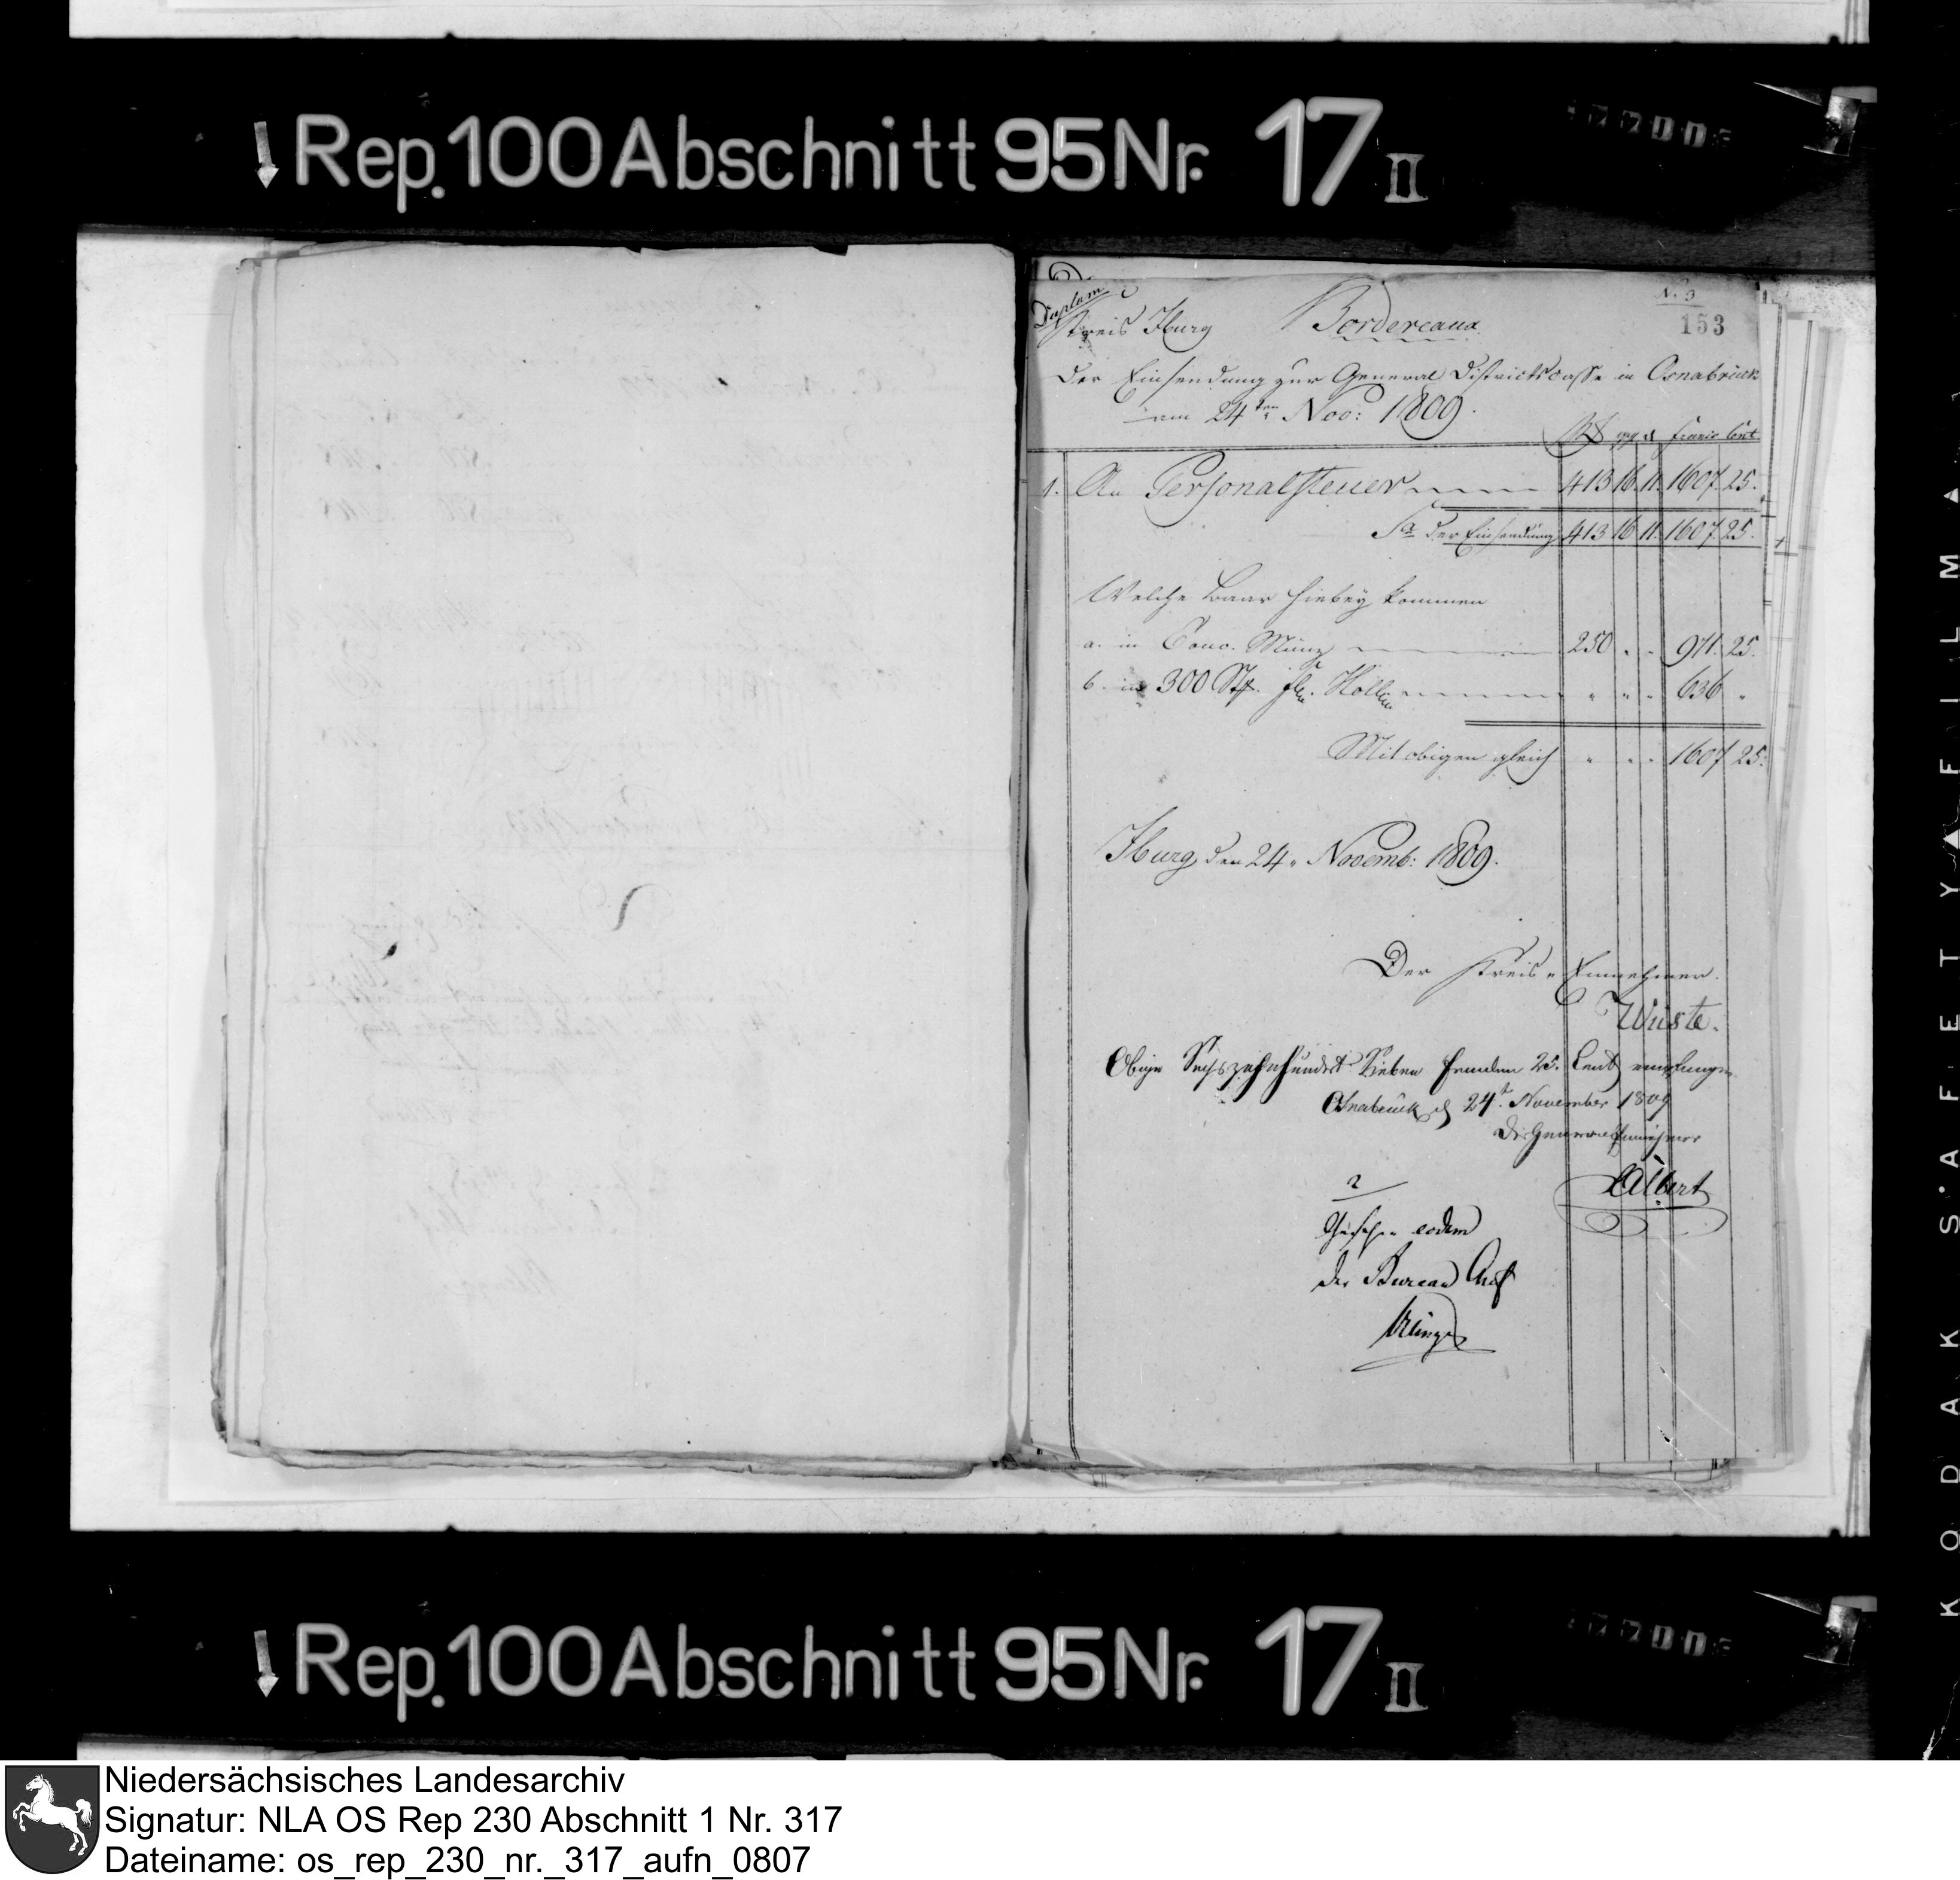 Rep. 100 Abschnitt 95 Nr. 17 II
N. 9
153
Duplum
Kreis Iburg Bordereaux
Der Einsendung zur General Districtscasse in Osnabrück
am 24ten Nov: 1809.
R₰ ggl ₰ Francs Cent.
1. An Personalsteuer 413 16 11 1607 25.
Sa der Einsendung 413 16 11 1607 25.
Welche baar hiebey kommen
a. in Conv. Münz 250 . . 971. 25.
b. in 300 Stk. Holl. " " " 636 "
Mit obigen gleich " " " 1607 25.
Iburg den 24. Novemb: 1809.
Der Kreis Einnehmer.
Wüste.
Obige Sechszehnhundert Sieben Franken 25. Cent empfangen
Osnabrück d 24t November 1809
Der General Einnehmer
Albert
Gesehen eodem
der Bureau Chef
Rep. 100 Abschnitt 95 Nr. 17 II
KODAK SAFETY FILM
Niedersächsisches Landesarchiv
Signatur: NLA OS Rep 230 Abschnitt 1 Nr. 317
Dateiname: os_rep_230_nr._317_aufn_0807